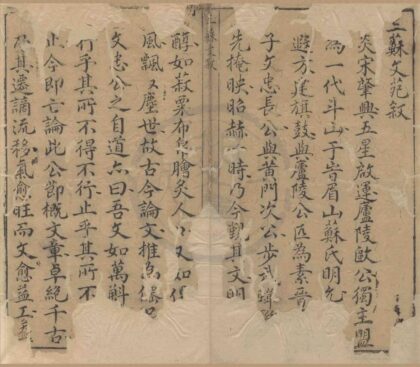 三蘇文范叙
炎宋肇興五星啟運廬陵歐公獨主盟
為一代斗山于旹眉山蘇氏明允
避方建旗鼓與廬陵公匹為素晉
子文忠長公與黃門次公步武
先掩映昭赫一時乃今觀其文明
醇如菽粟布膾炙人又如
風飄塵世故古今論文推為
文忠公之自道亦曰吾文如萬斛
行乎其所不得不行止乎其所不
止今即亡論此公節概文章卓絕千古
其遷謫流移氣愈旺而文愈益工